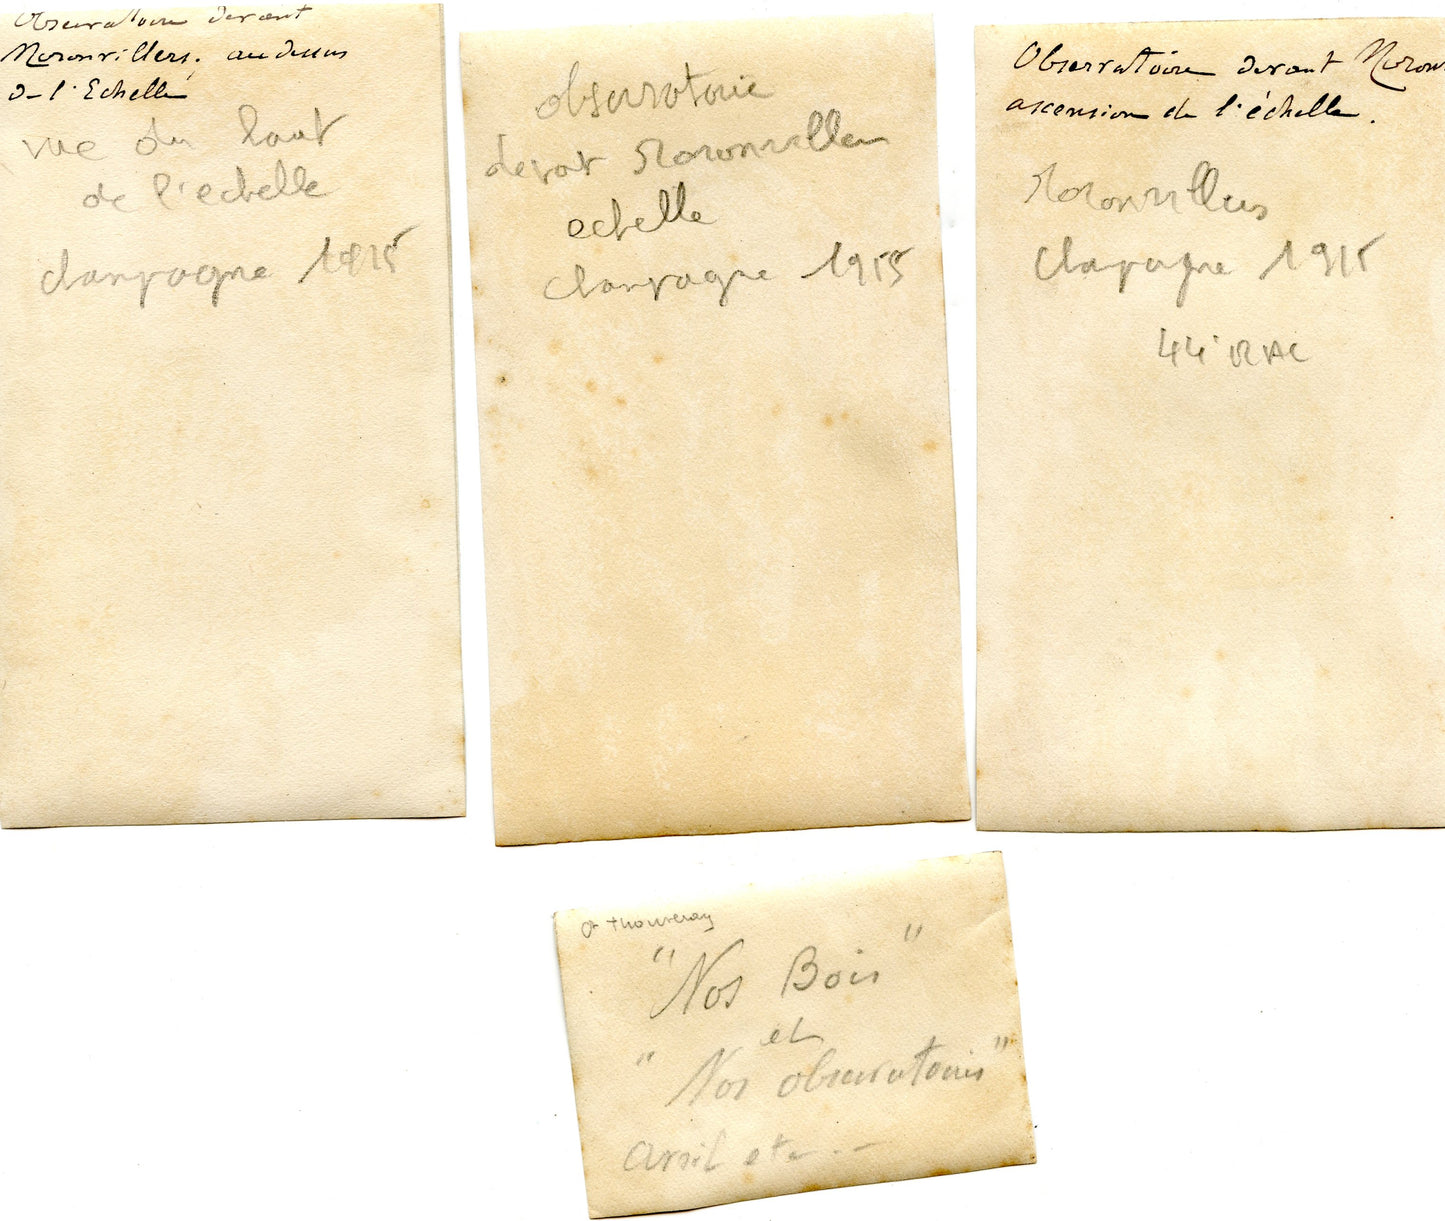 Observatoire devant
Moronvillers, au dessus
de l'Echelle
vue du haut
de l'echelle
Champagne 1915
observatoire
devant Moronvillers
echelle
Champagne 1915
Observatoire devant Moron
ascension de l'échelle.
Moronvillers
Champagne 1915
44e RAC
Thouveray
"Nos Bois"
et
"Nos observatoires"
avril etc. -